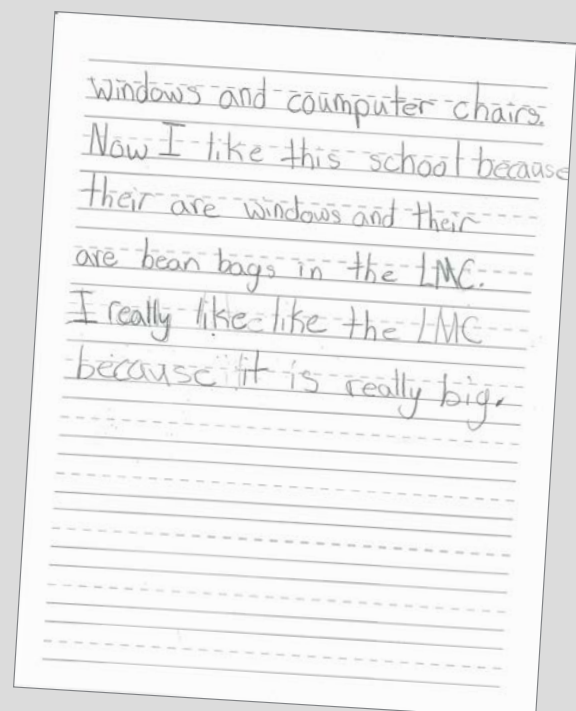 windows and coumputer chairs.
Now I like this school because
their are windows and their
are bean bags in the LMC.
I really like like the LMC
because it is really big.